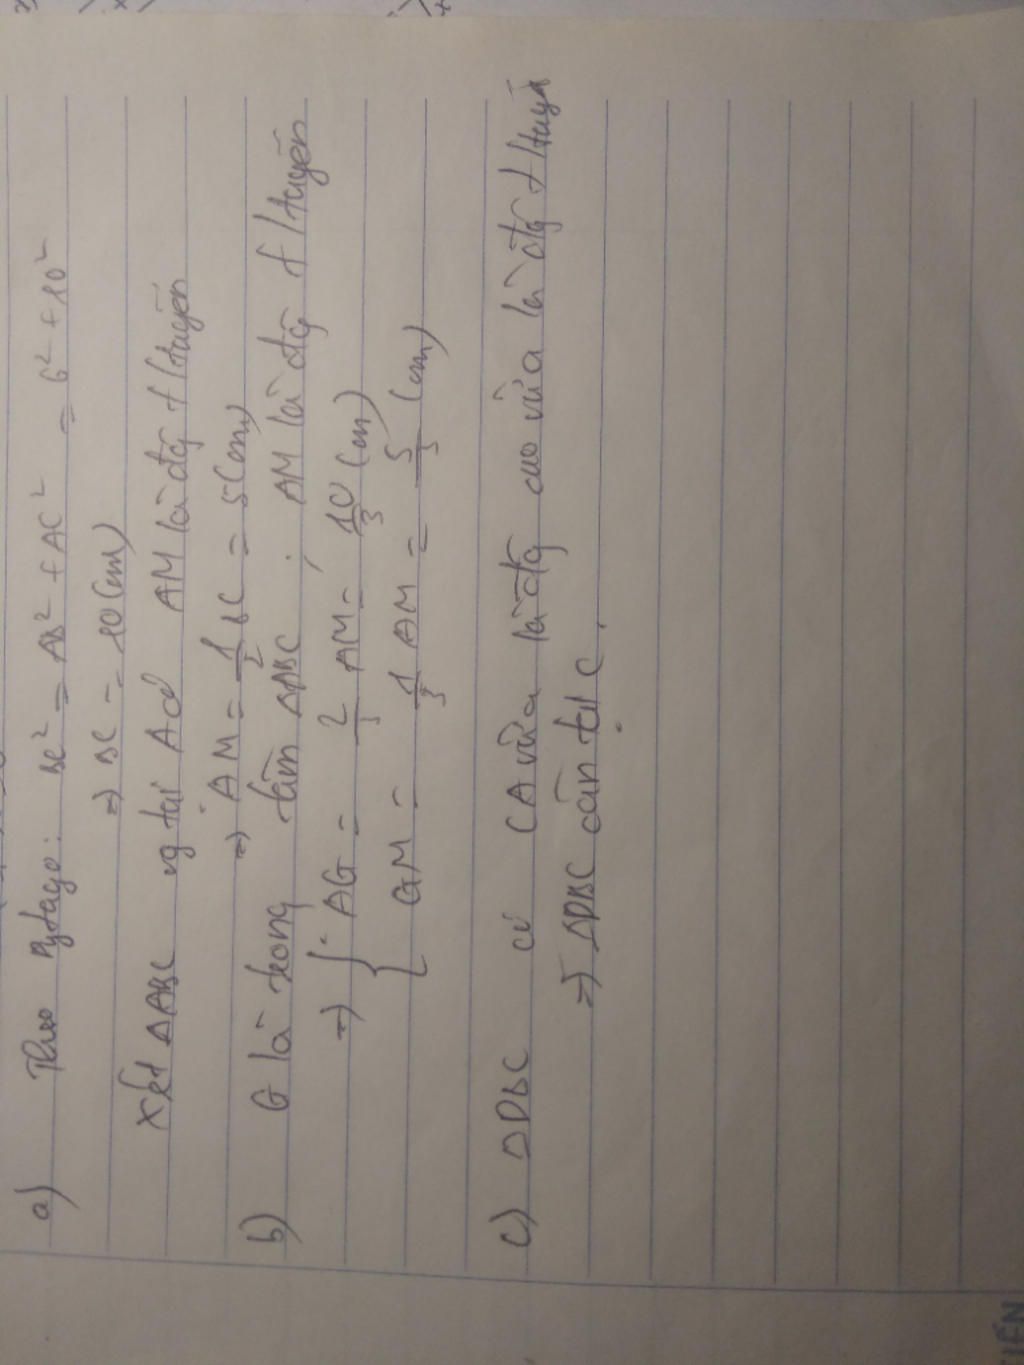 a) Theo Pytago: BC² = AB² + AC² = 6² + 10²
=> BC = 10 (cm)
Xét ΔABC vg tại A có AM là đg t/tuyến
=> AM = 1/2 BC = 5 (cm)
b) G là trong tâm ΔABC, AM là đg t/tuyến
=> { AG = 2/3 AM = 10/3 (cm)
GM = 1/3 AM = 5/3 (cm)
c) ΔDBC có CA vừa là đg cao vừa là đg t/tuyế
=> ΔDBC cân tại C.
IẾN